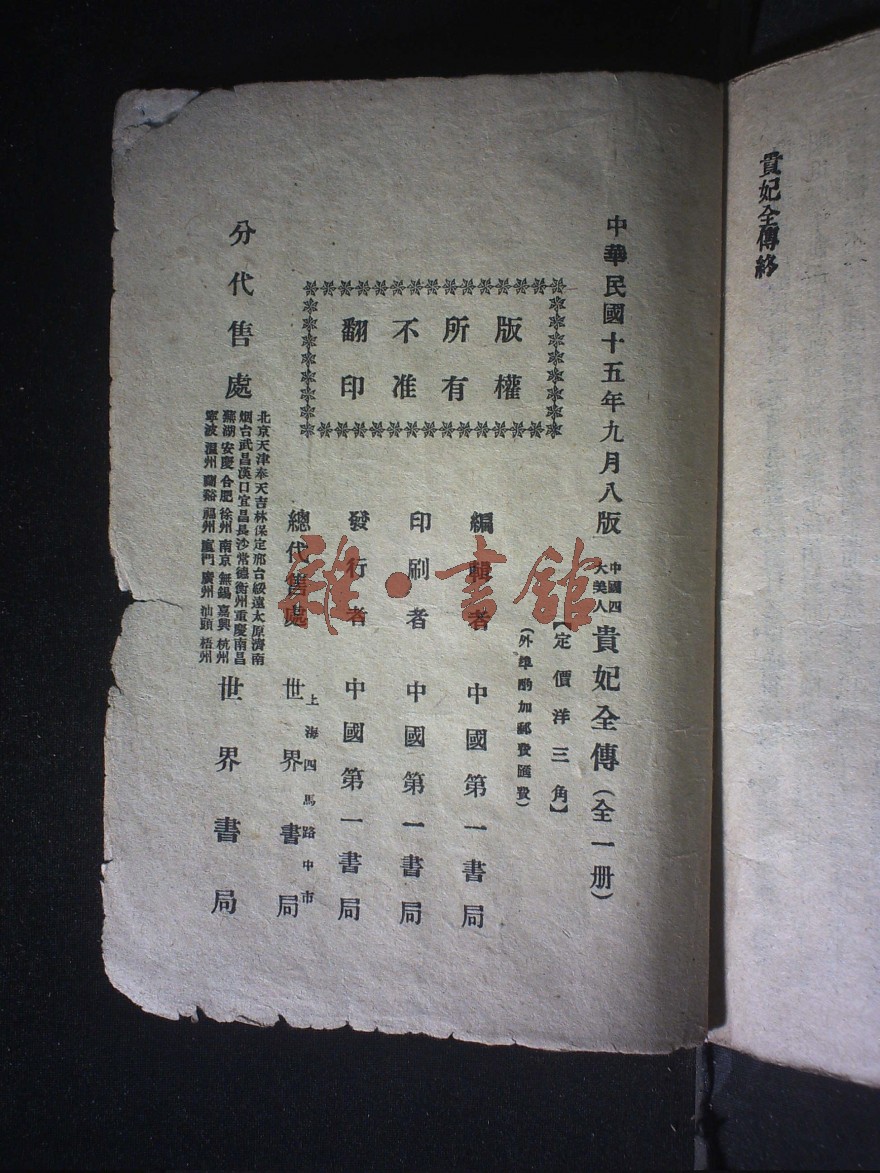 貴妃全傳終
中華民國十五年九月八版
中國四
大美人
貴妃全傳（全一册）
【定價洋三角】
（外埠酌加郵費匯費）
版權
所有
不准
翻印
編輯者 中國第一書局
印刷者 中國第一書局
發行者 中國第一書局
上海四馬路中市
總代售處 世界書局
分代售處
北京天津奉天吉林保定邢台綏遠太原濟南
烟台武昌漢口宜昌長沙常德衡州重慶南昌
蕪湖安慶合肥徐州南京無錫嘉興杭州
寧波溫州蘭谿福州廈門廣州汕頭梧州
世界書局
雜·書館